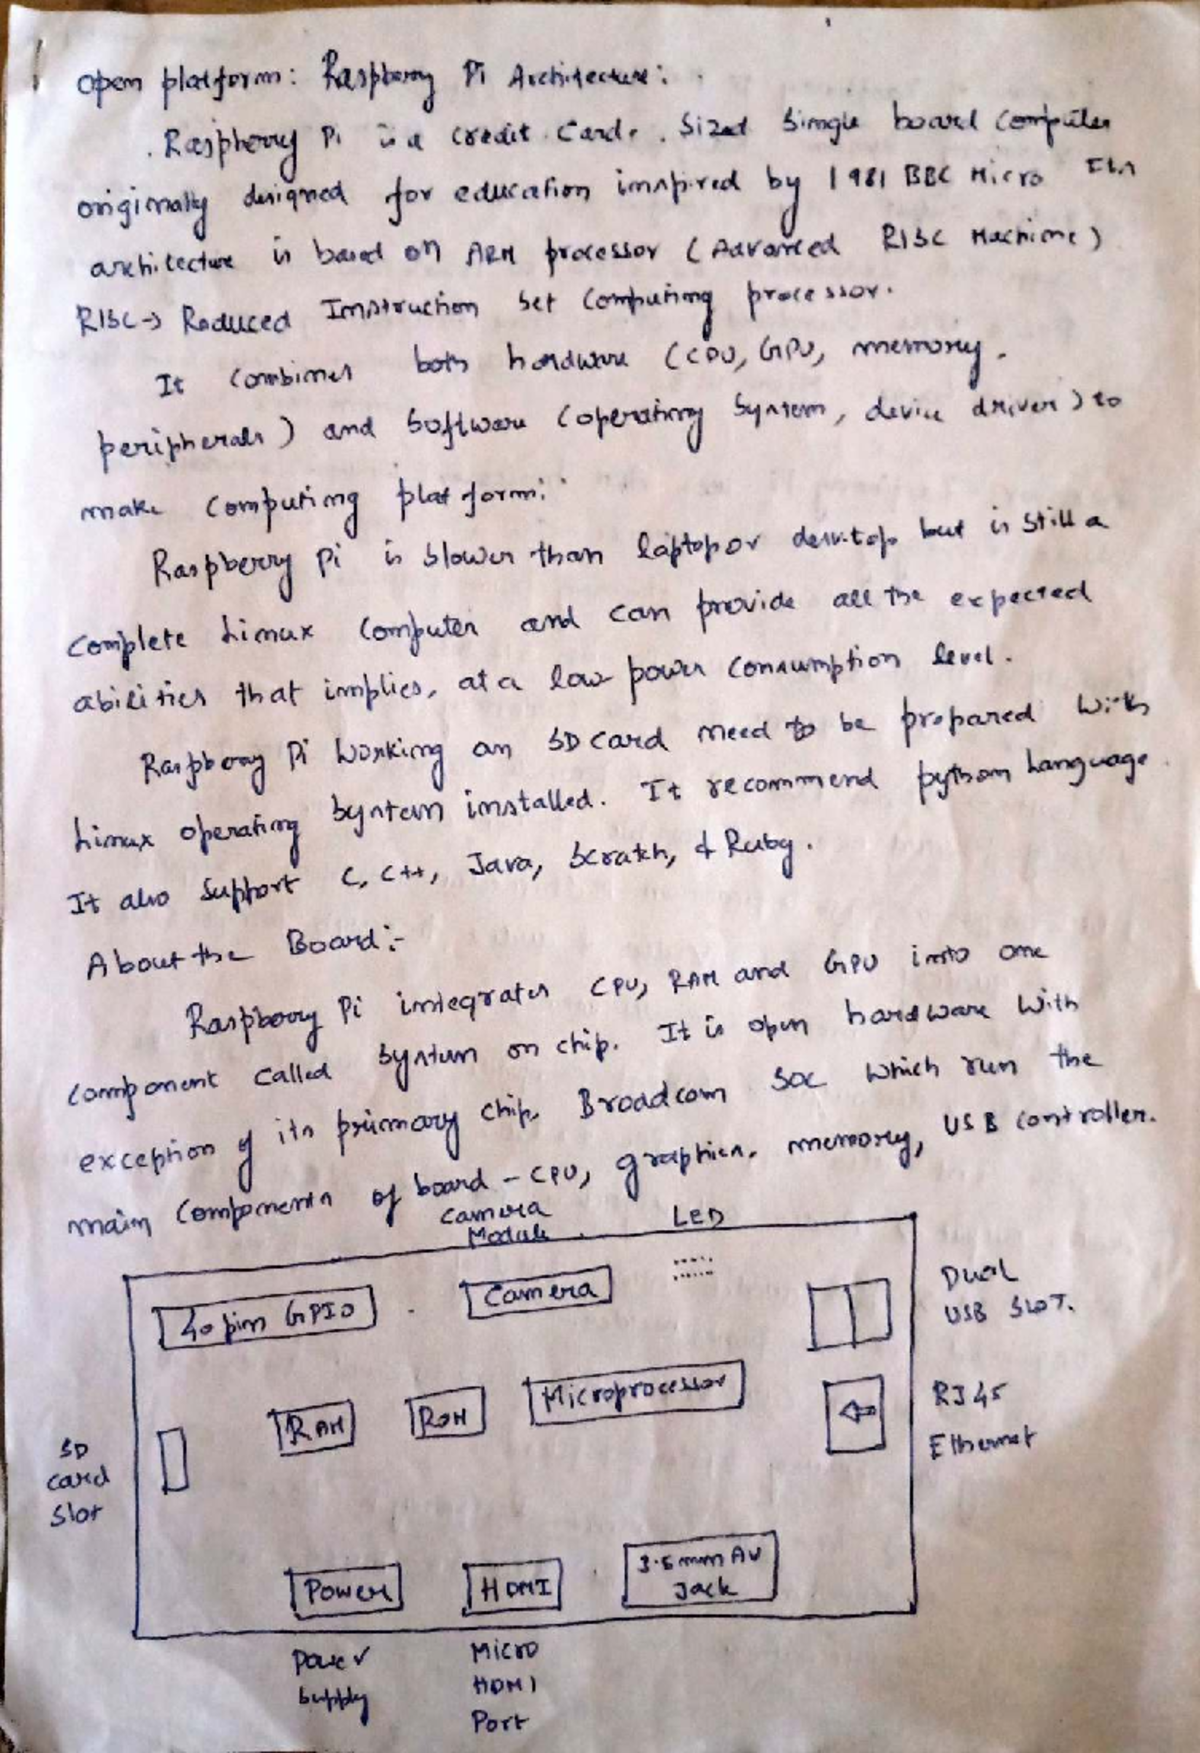 Open platform: Raspberry Pi Architecture:
Raspberry Pi is a credit card. Sized Single board Computer
originally designed for education inspired by 1981 BBC Micro Its
architecture is based on ARM processor (Advanced RISC Machine)
RISC → Reduced Instruction Set Computing processor.
It combines both hardware (CPU, GPU, memory,
peripherals) and Software (operating System, device driver) to
make Computing platform.
Raspberry Pi is slower than laptop or desktop but is still a
complete Linux Computer and can provide all the expected
abilities that implies, at a low power consumption level.
Raspberry Pi Working an SD card need to be prepared with
Linux operating System installed. It recommend python Language
It also Support C, C++, Java, Scratch, & Ruby.
About the Board:-
Raspberry Pi integrates CPU, RAM and GPU into one
Component called System on chip. It is open hardware With
exception of its primary chip. Broadcom SOC Which run the
main Components of board - CPU, graphics, memory, USB Controller.
Camera
Module
LED
40 pin GPIO
Camera
Dual
USB SLOT.
RAM
ROM
Microprocessor
RJ45
Ethernet
SD
card
Slot
Power
HDMI
3.5mm AV
Jack
Power
Supply
Micro
HDMI
Port